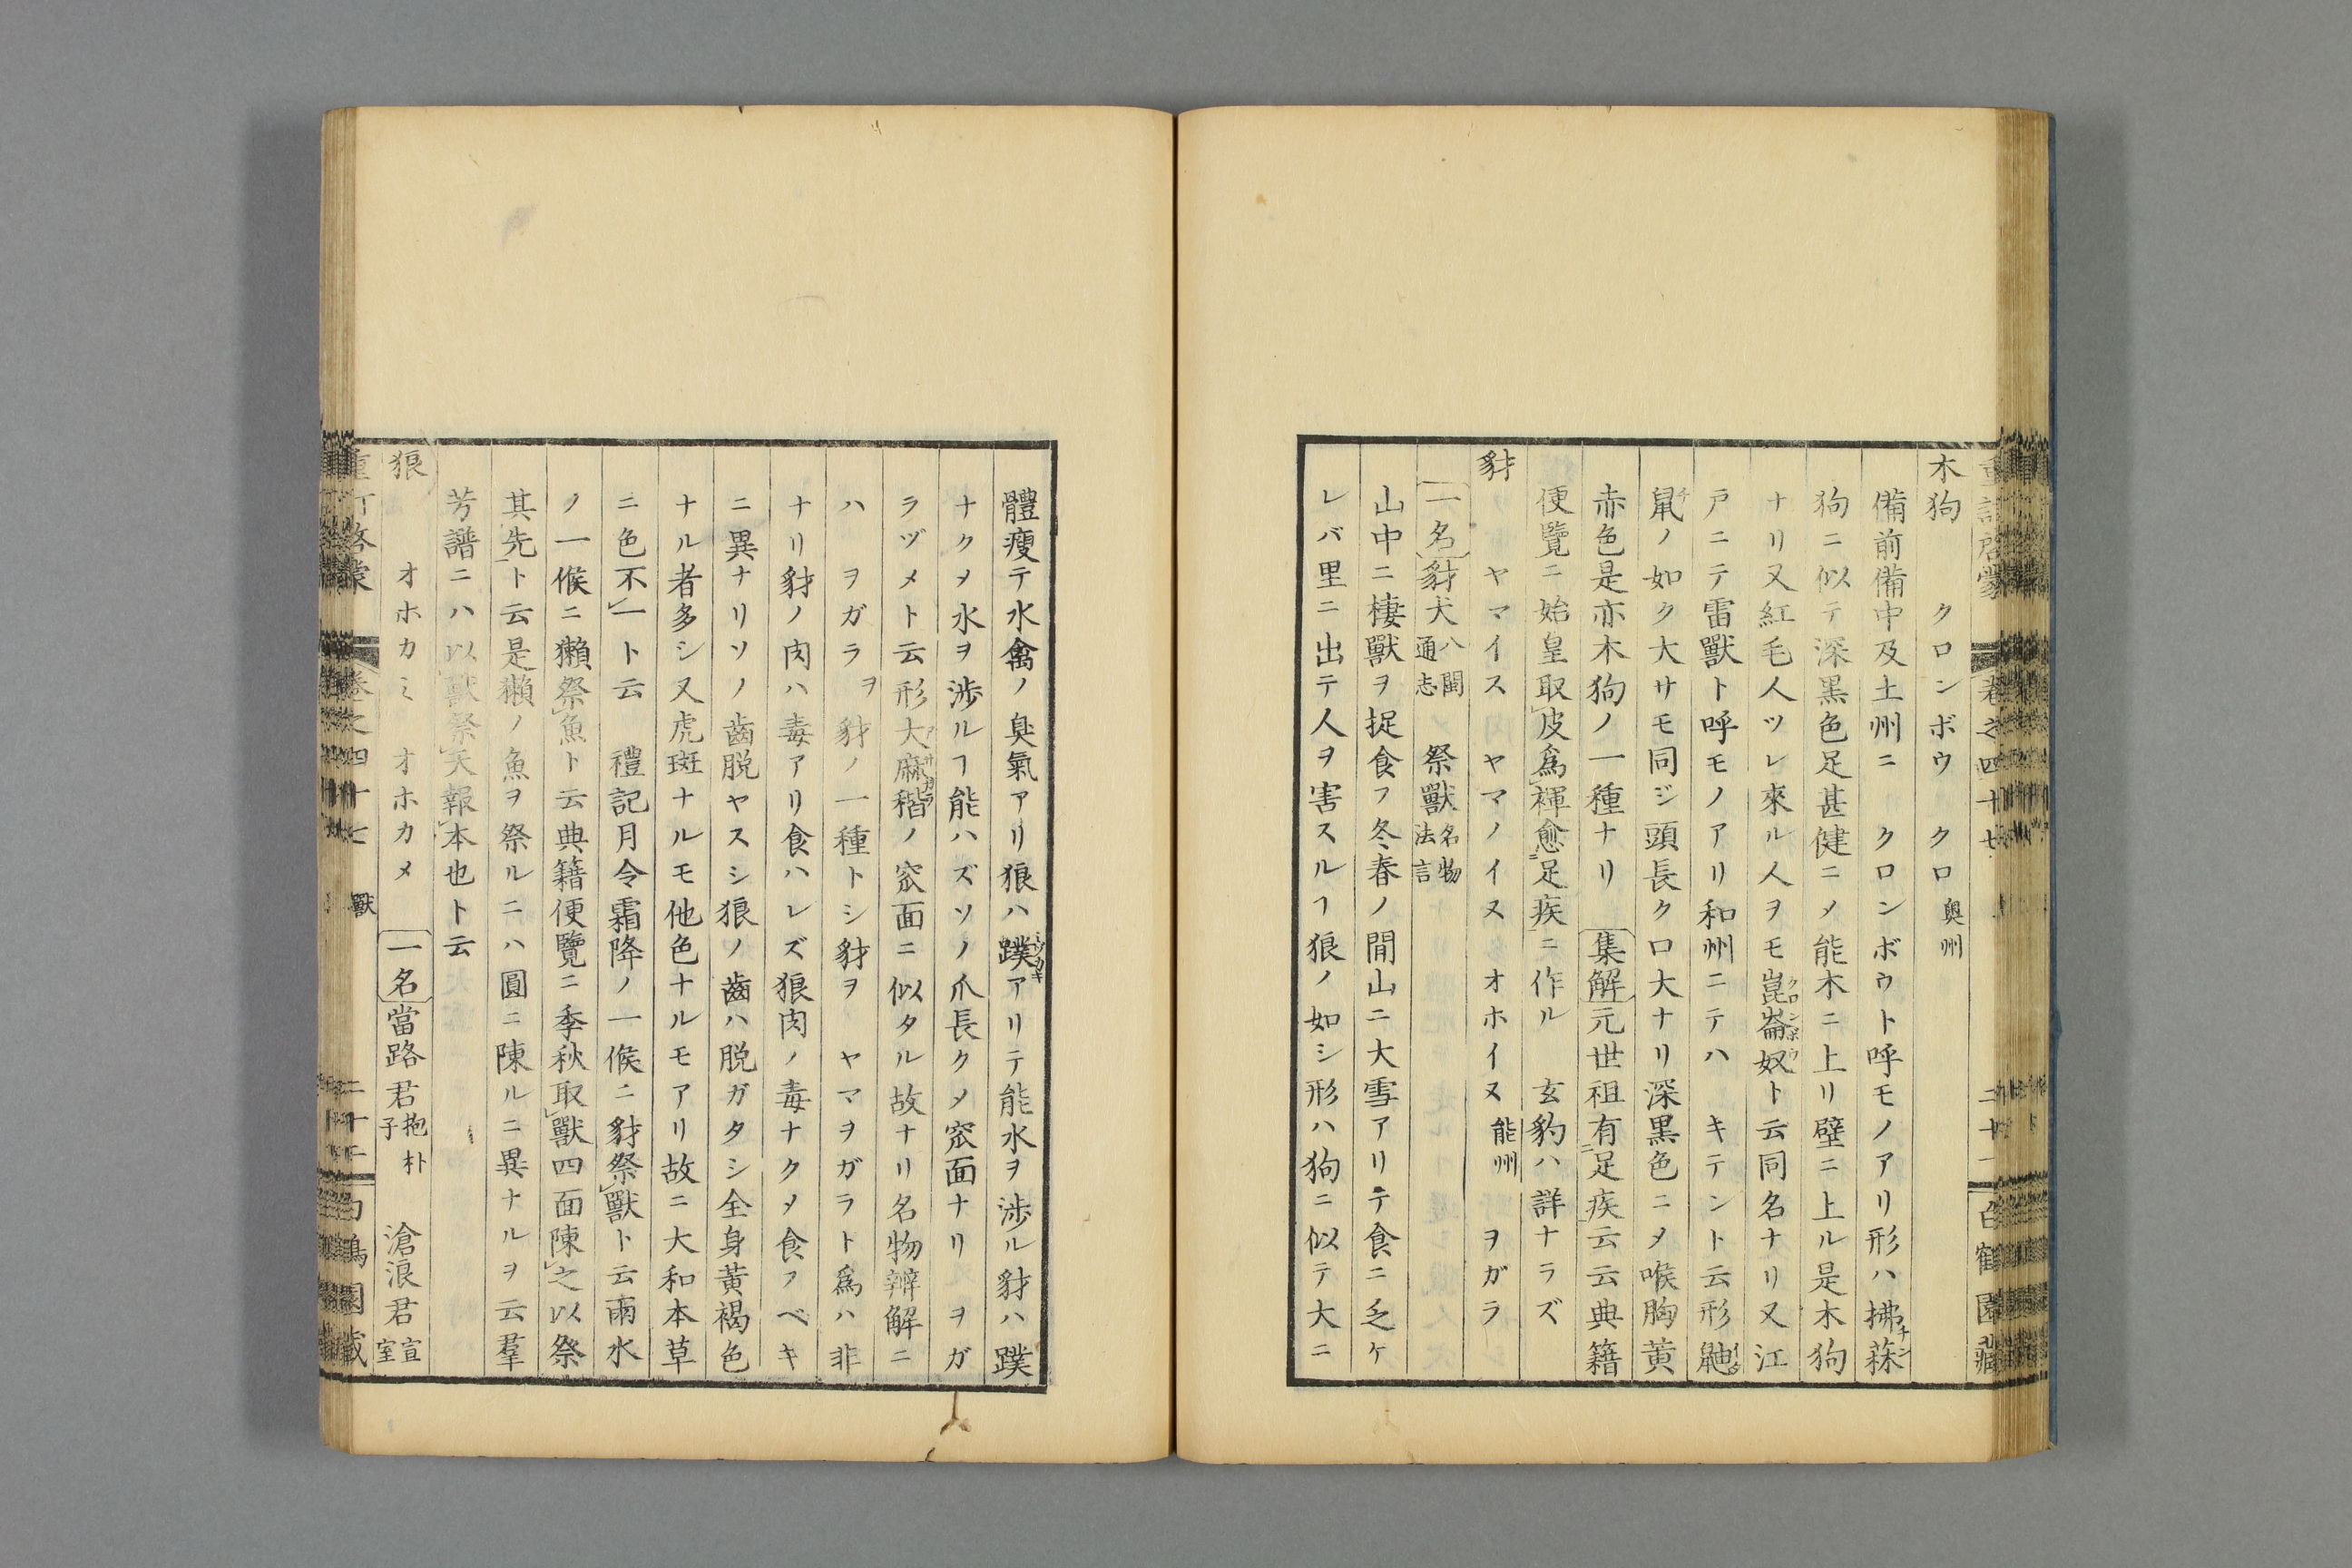 木狗 クロンボウ クロ 奥州
備前備中及土州ニ クロンボウト呼モノアリ形ハ拂菻
狗ニ似テ深黒色足甚健ニメ能木ニ上リ壁ニ上ル是木狗
ナリ又紅毛人ツレ來ル人ヲモ崑崙奴ト云同名ナリ又江
戸ニテ雷獸ト呼モノアリ和州ニテハ キテント云形鼬
鼠ノ如ク大サモ同ジ頭長ク口大ナリ深黒色ニメ喉胸黄
赤色是亦木狗ノ一種ナリ 集解 元世祖有足疾云云典籍
便覽ニ始皇取皮為褌愈足疾ニ作ル 玄豹ハ詳ナラズ
豺 ヤマイス ヤマノイヌ オホイヌ 能州 ヲガラ
一名 豺犬 八閩通志 祭獸 名物法言
山中ニ棲獸ヲ捉食フ冬春ノ間山ニ大雪アリテ食ニ乏ケ
レバ里ニ出テ人ヲ害スルヿ狼ノ如シ形ハ狗ニ似テ大ニ
體瘦テ水禽ノ臭氣アリ狼ハ蹼アリテ能水ヲ渉ル豺ハ蹼
ナクメ水ヲ渉ルヿ能ハズソノ爪長クメ窓面ナリ ヲガ
ラヅメト云形大麻稭ノ窓面ニ似タル故ナリ名物辨解ニ
ハ ヲガラヲ豺ノ一種トシ豺ヲ ヤマヲガラト為ハ非
ナリ豺ノ肉ハ毒アリ食ハレズ狼肉ノ毒ナクメ食フベキ
ニ異ナリソノ齒脱ヤスシ狼ノ齒ハ脱ガタシ全身黃褐色
ナル者多シ又虎斑ナルモ他色ナルモアリ故ニ大和本草
ニ色不一ト云 禮記月令霜降ノ一候ニ豺祭獸ト云雨水
ノ一候ニ獺祭魚ト云典籍便覽ニ季秋取獸四面陳之以祭
其先ト云是獺ノ魚ヲ祭ルニハ圓ニ陳ルニ異ナルヲ云羣
芳譜ニハ以獸祭天報本也ト云
狼 オホカミ オホカメ 一名 當路君 抱朴子 滄浪君 宣室
重訂啓蒙 卷之四十七 獸 二十二